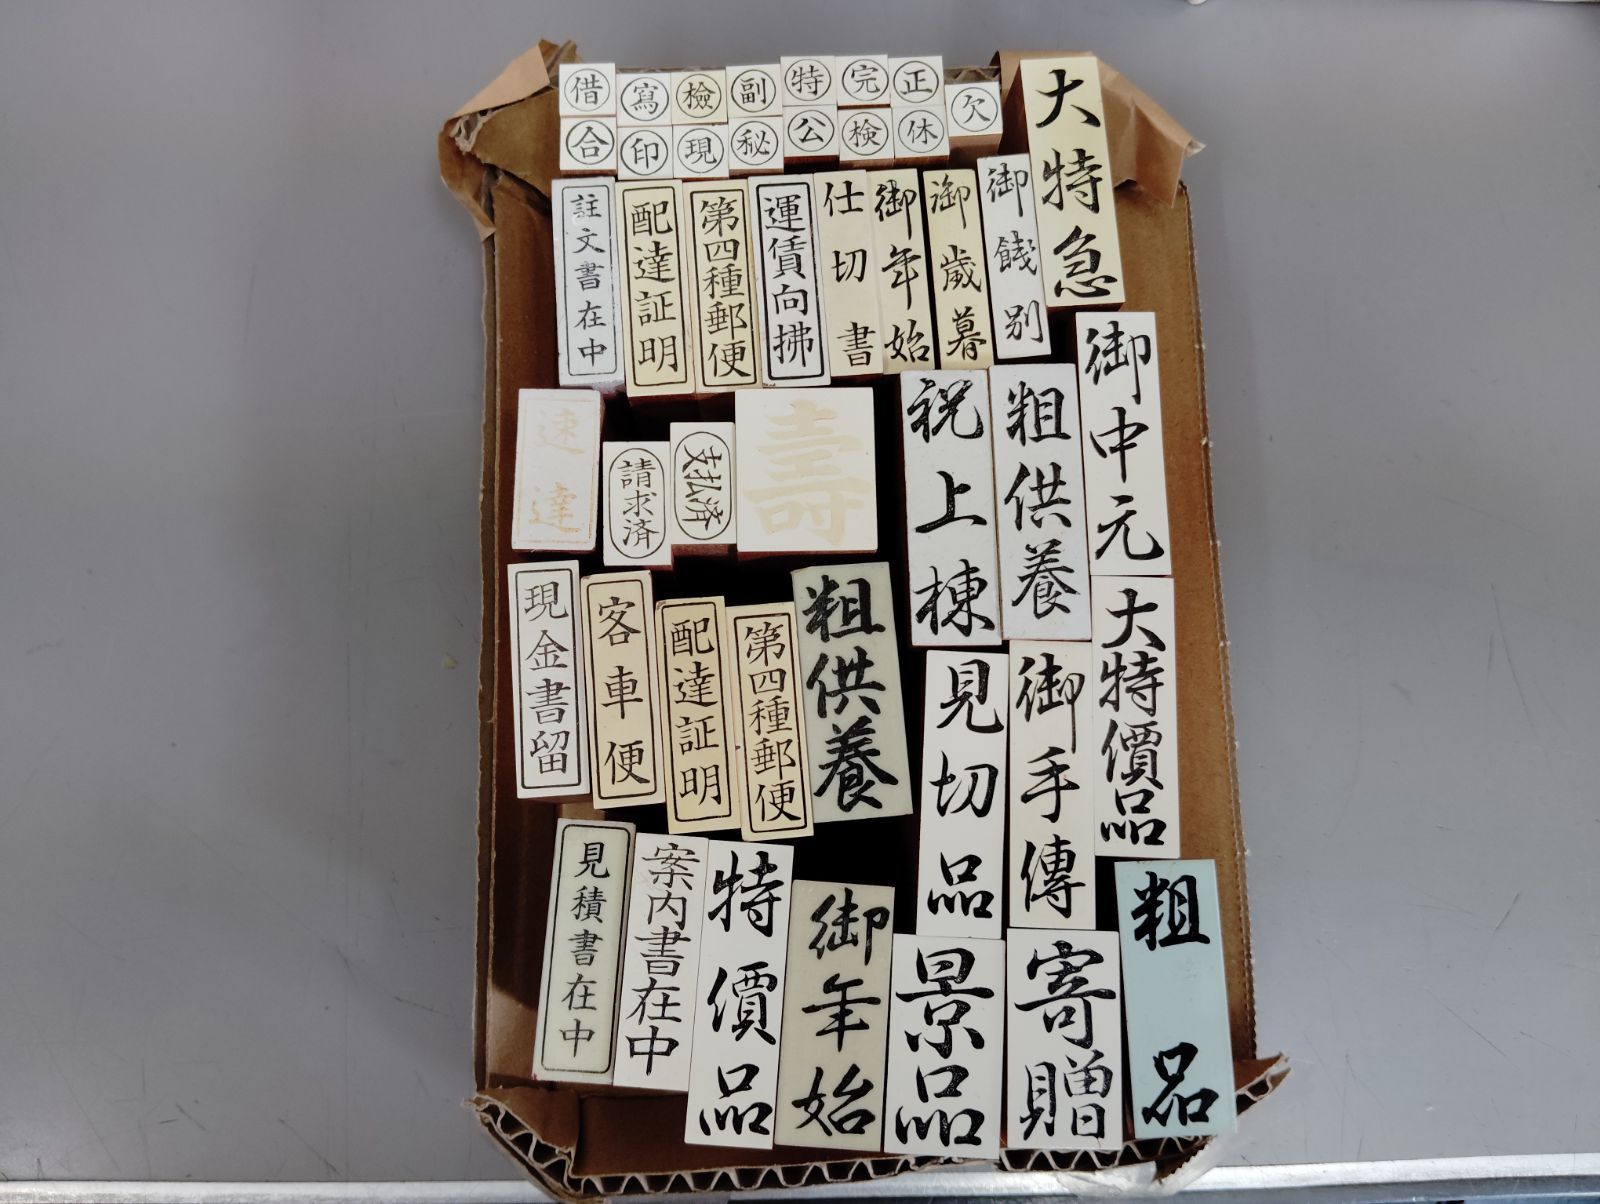 借
寫
檢
副
特
完
正
欠
合
印
現
秘
公
検
休
大特急
註文書在中
配達証明
第四種郵便
運賃向拂
仕切書
御年始
御歳暮
御餞別
御中元
速達
請求済
支払済
壽
祝上棟
粗供養
現金書留
客車便
配達証明
第四種郵便
粗供養
見切品
御手傳
大特價品
見積書在中
案内書在中
特價品
御年始
景品
寄贈
粗品